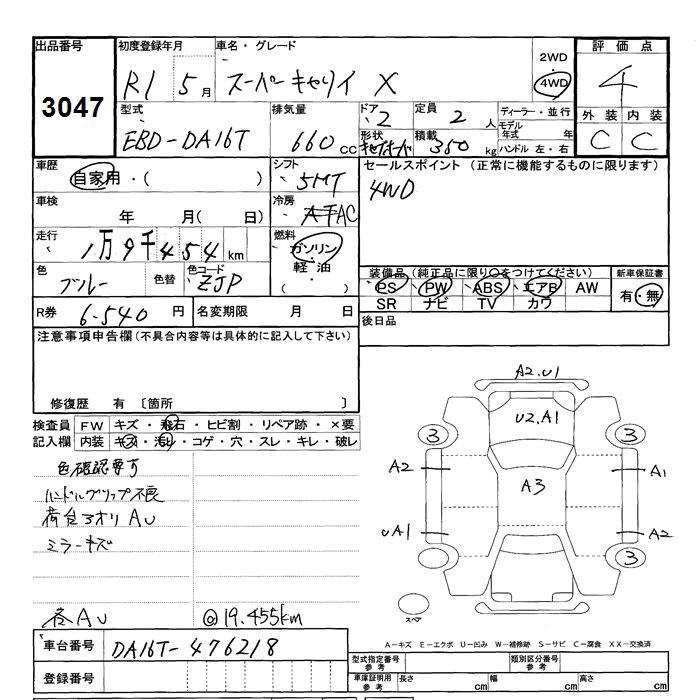 出品番号 初度登録年月 車名・グレード 2WD 評価点
3047 R1 5月 スーパーキャリイ X 4WD 4
型式 排気量 ドア 定員 ディーラー・並行 外装 内装
EBD-DA16T 660cc 2 2人 モデル年式 年 C C
形状 積載 350kg ハンドル 左・右
車歴 シフト セールスポイント (正常に機能するものに限ります)
自家用・( ) 5MT 4WD
車検 冷房
年 月( 日) AC
走行 燃料
1万9千454km ガソリン
軽・油
( )
色 色替 色コード 装備品 (純正品に限り○をつけてください) 新車保証書
ブルー ZJP PS PW ABS エアB AW 有・無
SR ナビ TV カワ
R券 6-540円 名変期限 月 日 後日品
注意事項申告欄(不具合内容等は具体的に記入して下さい)
修復歴 有 〔箇所 〕
検査員 FW キズ・飛石・ヒビ割・リペア跡・×要
記入欄 内装 キズ・汚れ・コゲ・穴・スレ・キレ・破レ
色確認要可
ハンドルグリップ不良
荷台アオリ AU
ミラーキズ
各AU @19.455km
A2.U1
U2.A1
3 3
A2 A1
A3
UA1 A2
3
スペア
A-キズ E-エクボ U-凹み W-補修跡 S-サビ C-腐食 XX-交換済
車台番号 DA16T-476218
型式指定番号 参考 類別区分番号 参考
登録番号 車庫証明用 参考 長さ cm 幅 cm 高さ cm